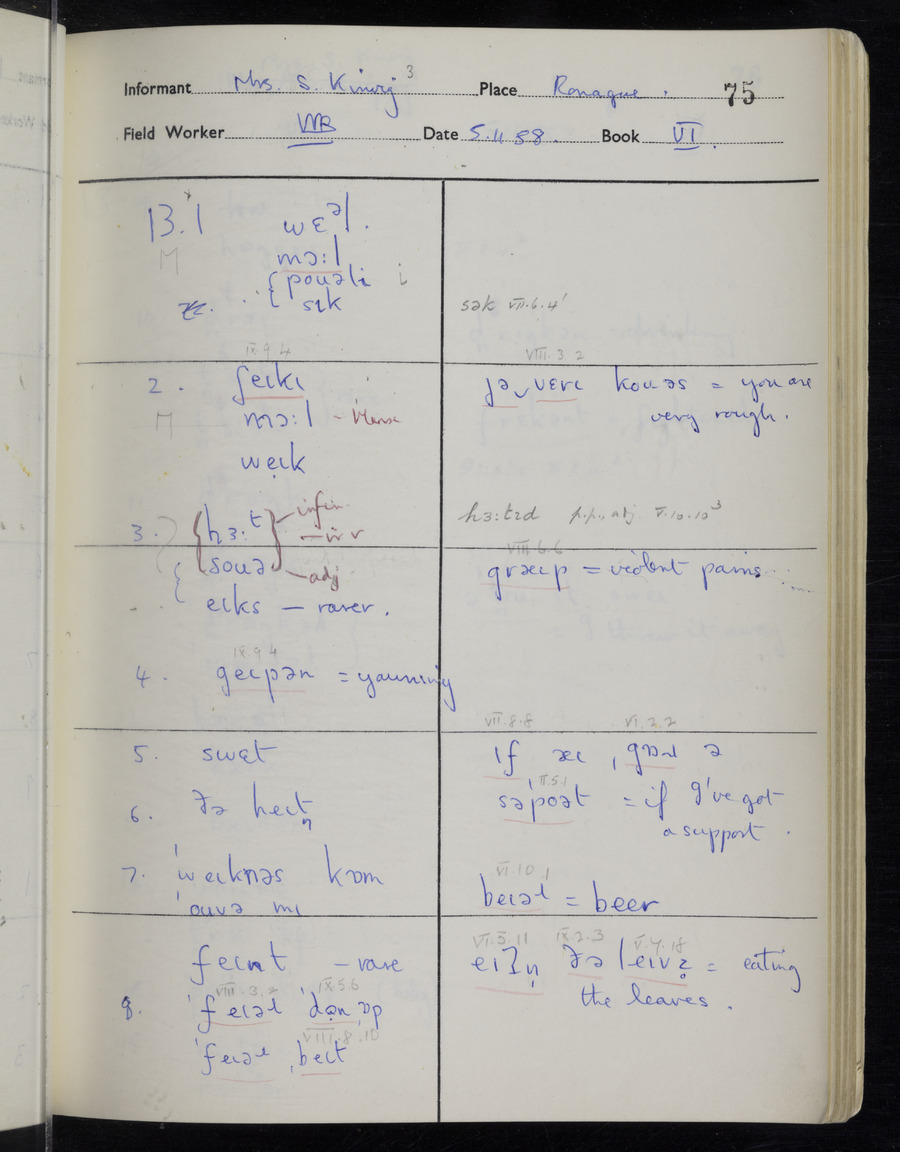 Informant Mrs. S. Kinvig 3 Place Ronague. 75
Field Worker WB Date 5.11.58. Book VI.
13.1 wɛᵊl.
M mɔ:l
{ pouəli i
sɪk
sək VII.6.4'
IX.9.4
2. ʃeɪkɪ
M mɔ:l - Manx
weɪk
VIII.3.2
jə‿veɾɪ kouəs = you are
very rough.
3. {hɜ:t} infin.
souə — adj
eɪks — rarer.
hɜ:tɪd p.p., adj. V.10.10³
VIII.6.6
græɪp = violent pains
IX.9.4
4. geɪpən = yawning
5. swɛt
6. ðə heɪt
7. ˈweɪknəs kɒm
ˈouvə mɪ
VII.8.8 VI.2.2
ɪf æɪ ˌgɒt ə
ˌII.5.1
səpoət = if I've got
a support.
VI.10.1
beɪəɹ = beer
feɪnt — rare
VIII.3.2 IX.5.6
8. ˈfeɪəɹ ˈdən ˌɒp
VIII.8.10
ˈfeɪəɹ ˌbeɪt
VI.5.11 IX.2.3 V.7.18
ðə leɪvz = eating
the leaves.